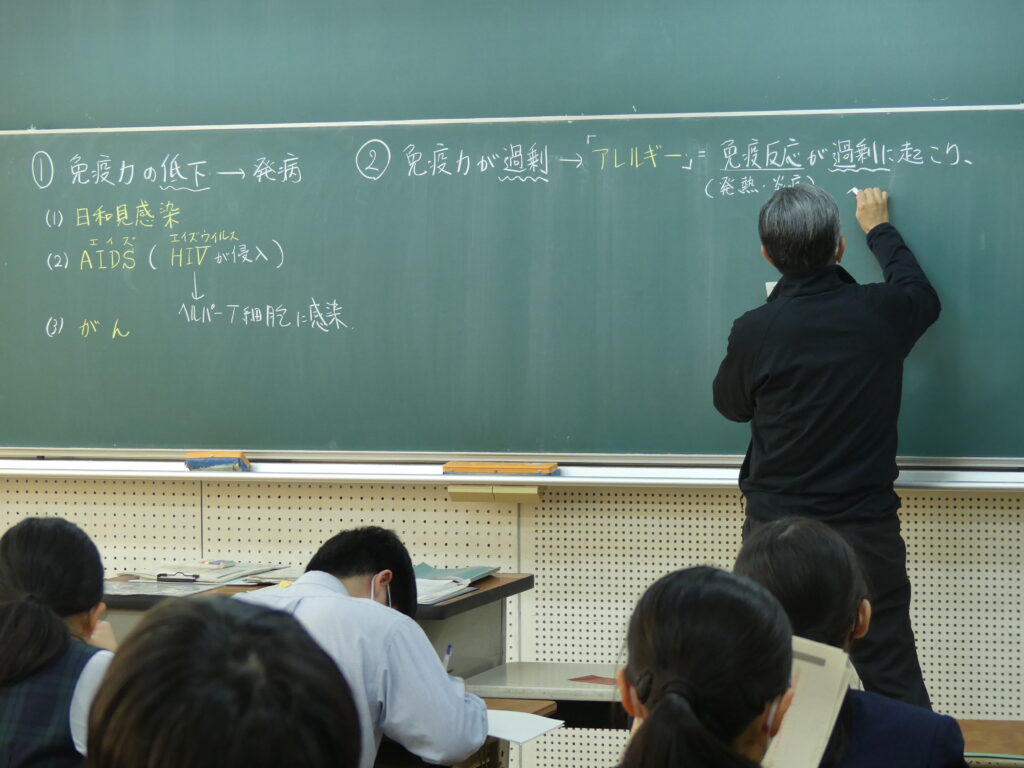 ① 免疫力の低下 → 発病
(1) 日和見感染
エイズ エイズウイルス
(2) AIDS ( HIVが侵入 )
↓
ヘルパーT細胞に感染.
(3) がん
② 免疫力が過剰 → 「アレルギー」= 免疫反応が過剰に起こり、
(発熱・炎症)